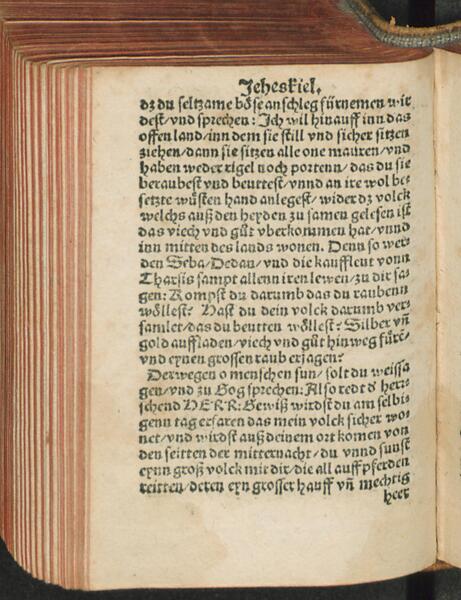 Jeheskiel.
dz du seltzame böse anschleg fürnemen wir
dest/vnd sprechen: Ich wil hinauff inn das
offen land/inn dem sie still vnd sicher sitzen
ziehen/dann sie sitzen alle one mauren/vnd
haben weder rigel noch portenn/das du sie
beraubest vnd beuttest/vnnd an ire wol be⸗
setzte wüsten hand anlegest/wider dz volck
welchs auß den heyden zu samen gelesen ist
das viech vnd gůt vberkommen hat/vnnd
inn mitten des lands wonen. Denn so wer⸗
den Seba/Dedan/vnd die kauffleut vonn
Tharsis sampt allenn iren lewen/zu dir sa⸗
gen: Kompst du darumb das du raubenn
wöllest? Hast du dein volck darumb ver⸗
samlet/das du beutten wöllest? Silber vñ
gold auffladen/viech vnd gůt hinweg fůre/
vnd eynen grossen raub erjagen?
Derwegen o menschen sun/solt du weissa
gen/vnd zu Gog sprechen: Also redt d' herr⸗
schend HERR: Gewiß wirdst du am selbi⸗
genn tag erfaren das mein volck sicher wo⸗
net/vnd wirdst auß deinem ort komen von
den seitten der mitternacht/du vnnd sunst
eynn groß volck mit dir/die all auff pferden
reitten/deren eyn grosser hauff vñ mechtig
heer